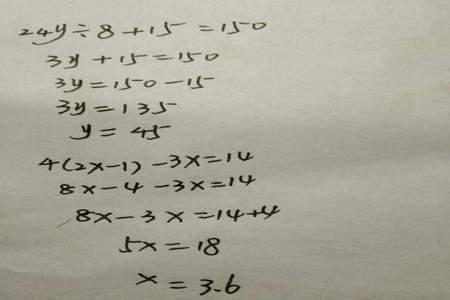 24y÷8+15=150
3y+15=150
3y=150-15
3y=135
y=45
4(2x-1)-3x=14
8x-4-3x=14
8x-3x=14+4
5x=18
x=3.6